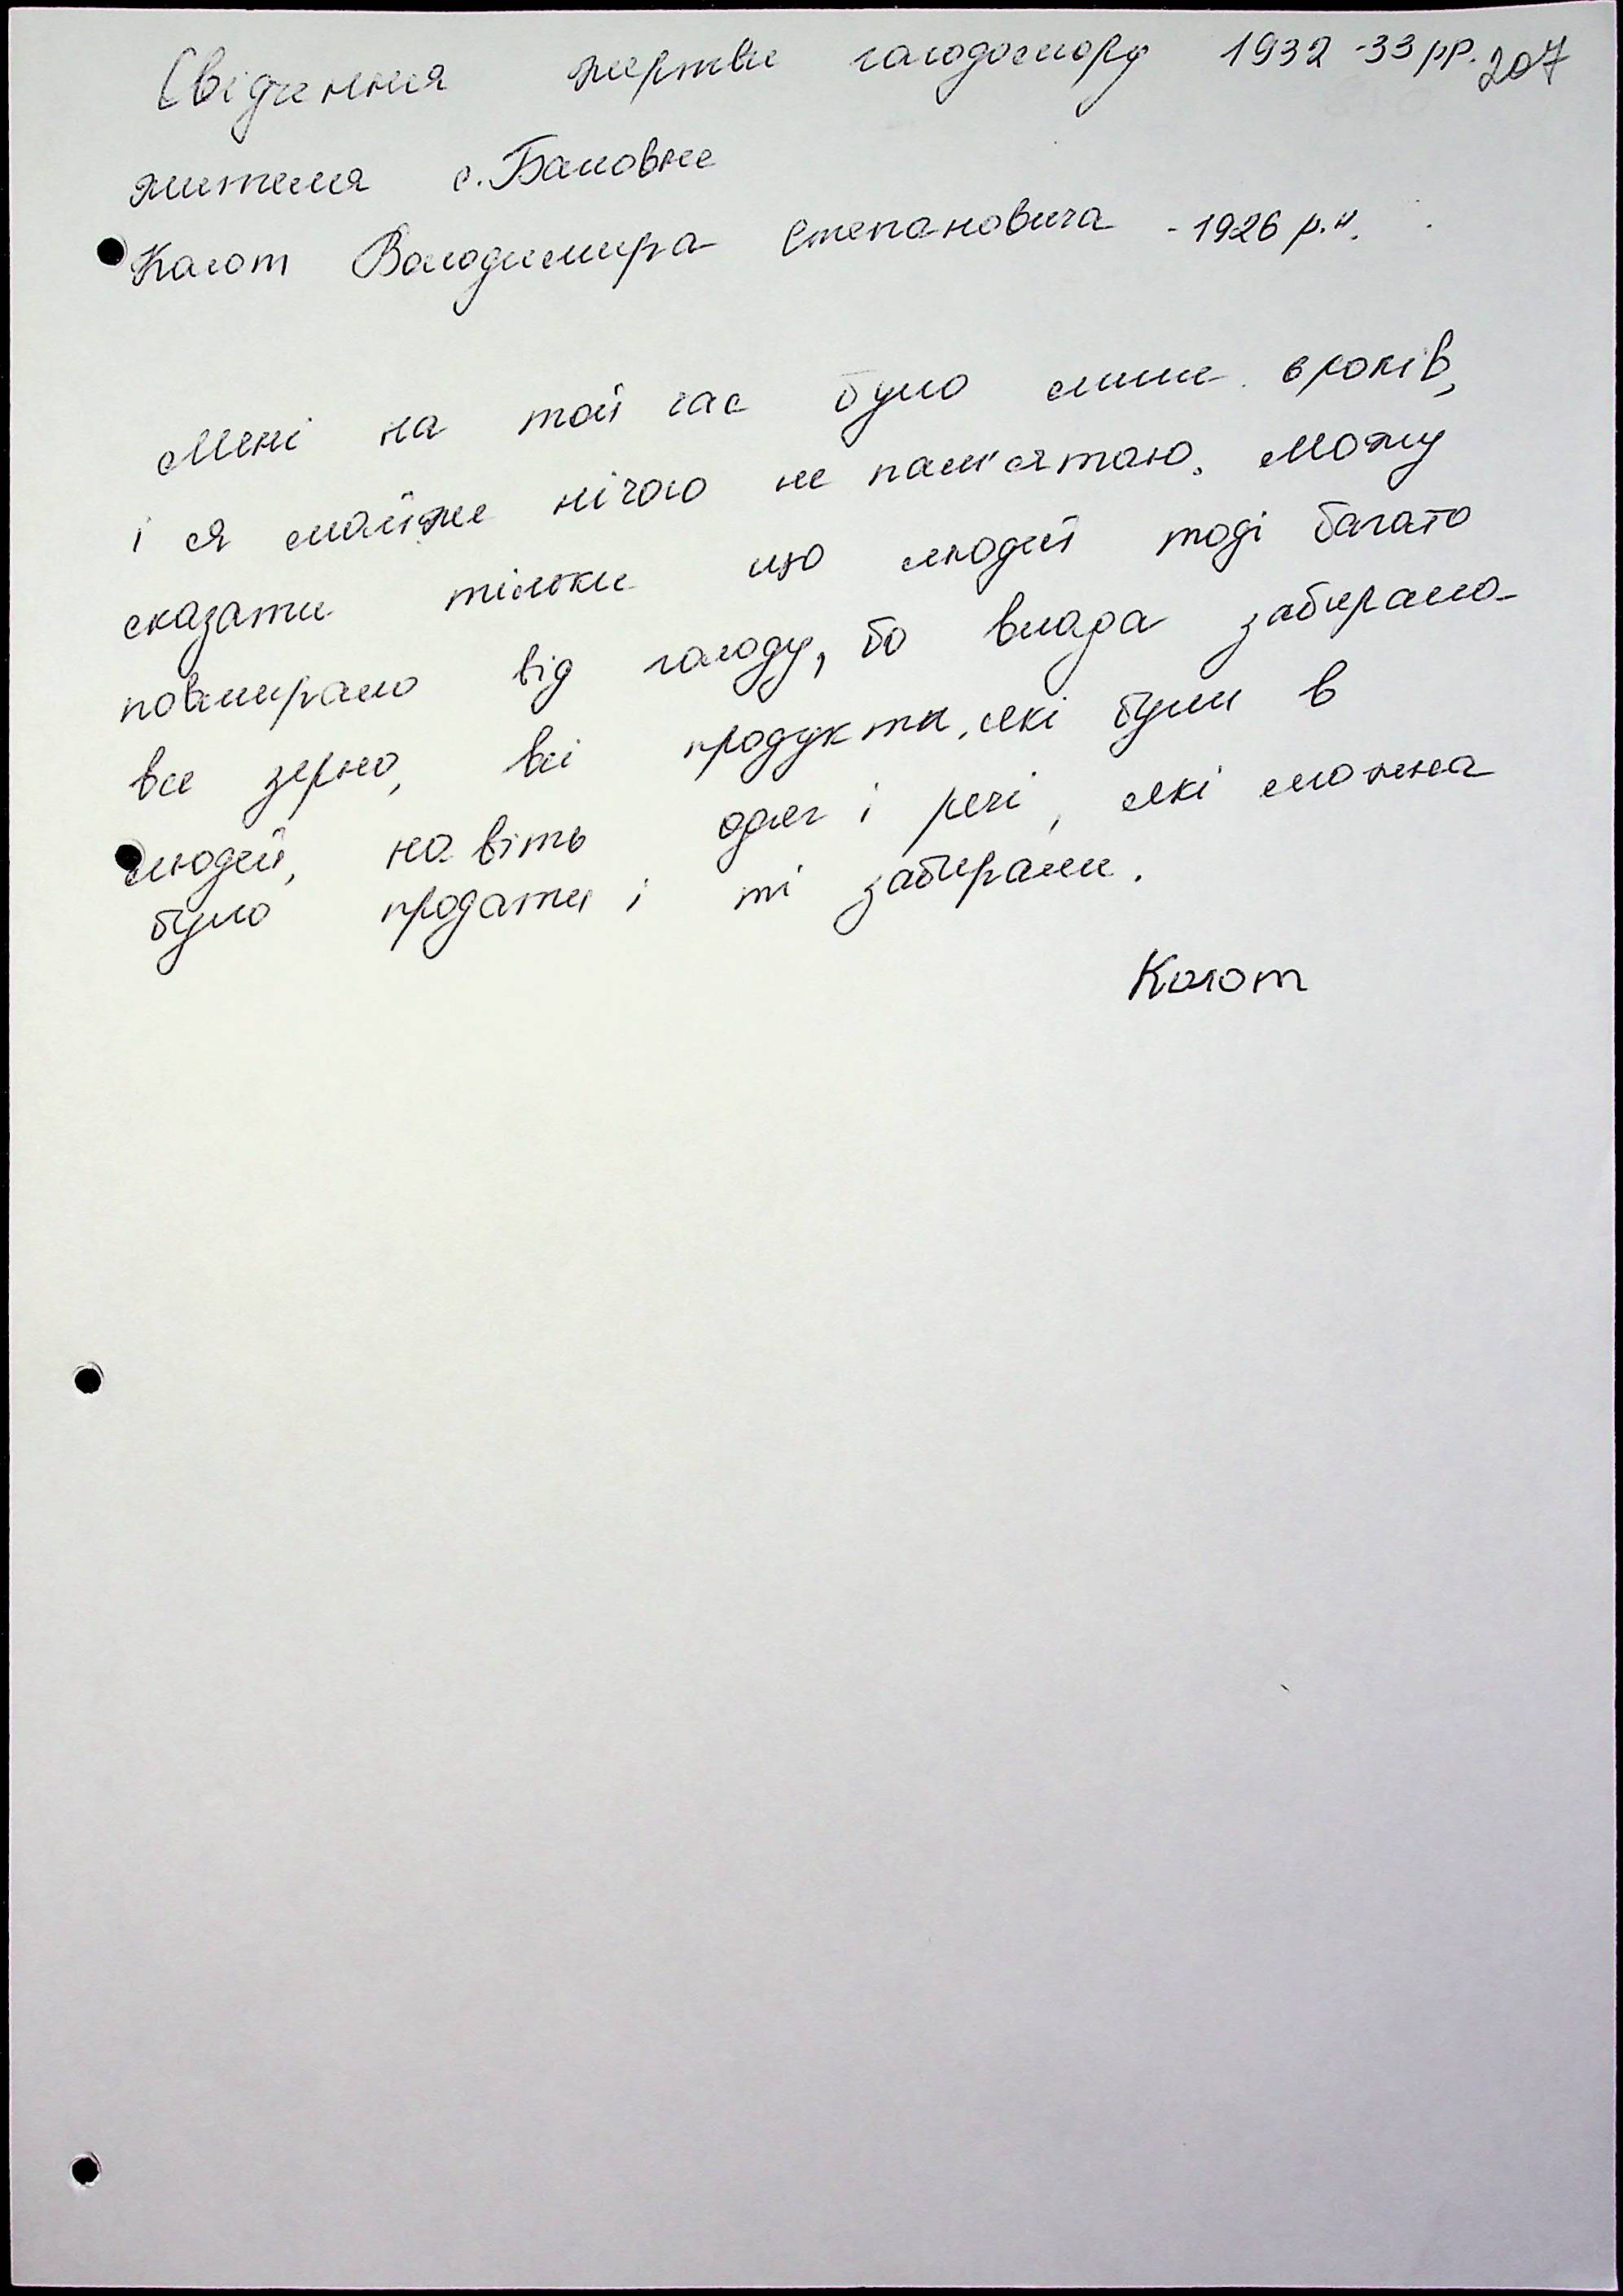 Свідчення жертви голодомору 1932-33 рр. 207
жителя с. Баловне
Когот Володимира Степановича - 1926 р.н.
Мені на той час було лише 6 років,
і я майже нічого не пам'ятаю. Можу
сказати тільки що людей тоді багато
повмирало від голоду, бо влада забирала
все зерно, всі продукти, які були в
людей, навіть одяг і речі, які можна
було продати і ті забирали.
Когот